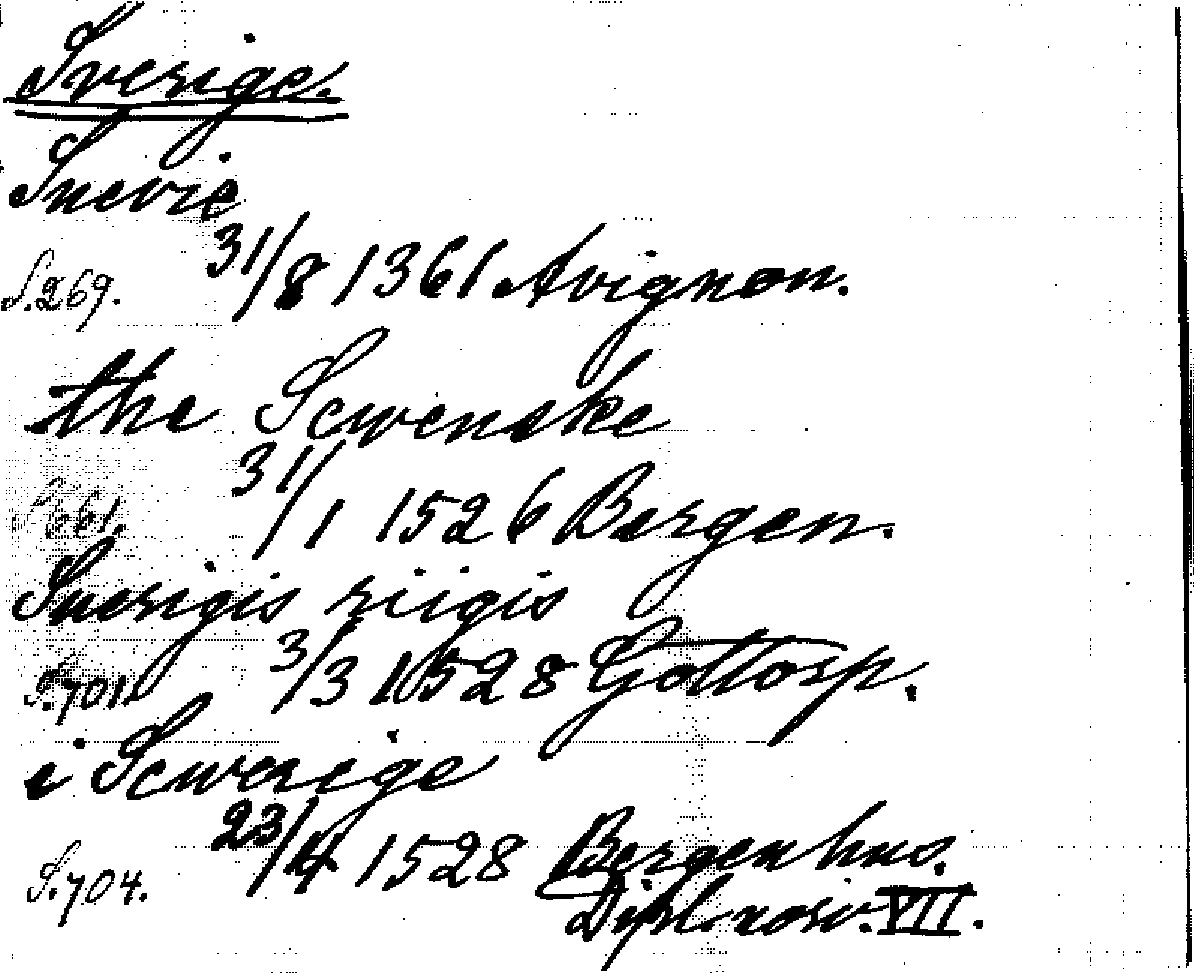 Sverige.
Suecie
S.269. 31/8 1361 Avignon.
the Scwenske
S.661. 31/1 1526 Bergen.
Suerigis riigis
S.701. 3/3 1528 Gottorp.
i Scwerige
S.704. 23/4 1528 Bergenhus.
Diplnorv. VII.